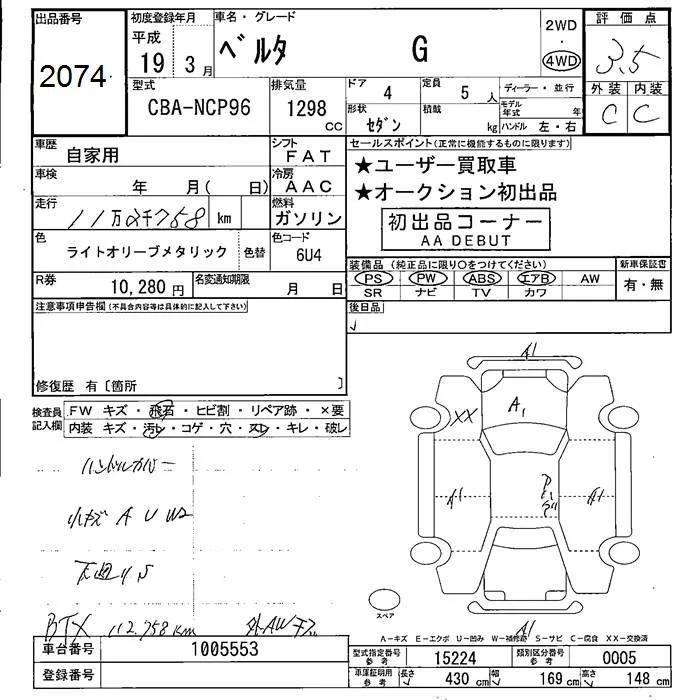 出品番号 2074
初度登録年月 平成 19 3月
車名・グレード ベルタ G
2WD ・ 4WD
評価点 3.5
外装 内装
C C
型式 CBA-NCP96
排気量 1298 cc
ドア 4 定員 5 人
形状 セダン 積載 kg
ディーラー・並行
モデル年式 年
ハンドル 左・右
車歴 自家用
シフト FAT
車検 年 月( 日)
冷房 AAC
走行 11万2千758 km
燃料 ガソリン
色 ライトオリーブメタリック 色替
色コード 6U4
R券 10,280円
名変通知期限 月 日
セールスポイント(正常に機能するものに限ります)
★ユーザー買取車
★オークション初出品
初出品コーナー
AA DEBUT
装備品 (純正品に限り○をつけてください)
PS PW ABS エアB AW
SR ナビ TV カワ
新車保証書
有・無
後日品
注意事項申告欄(不具合内容等は具体的に記入して下さい)
修復歴 有〔箇所 〕
検査員記入欄
FW キズ・飛石・ヒビ割・リペア跡・×要
内装 キズ・汚レ・コゲ・穴・スレ・キレ・破レ
ハンドルカバー
小キズ A U W2
下廻り S
BTX 112.758km 外AWキズ
A1
XX
A1
A1
A1
A1
スペア
A-キズ E-エクボ U-凹み W-補修跡 S-サビ C-腐食 XX-交換済
車台番号 1005553
登録番号
型式指定番号 参考 15224
類別区分番号 参考 0005
車庫証明用 参考 長さ 430 cm 幅 169 cm 高さ 148 cm